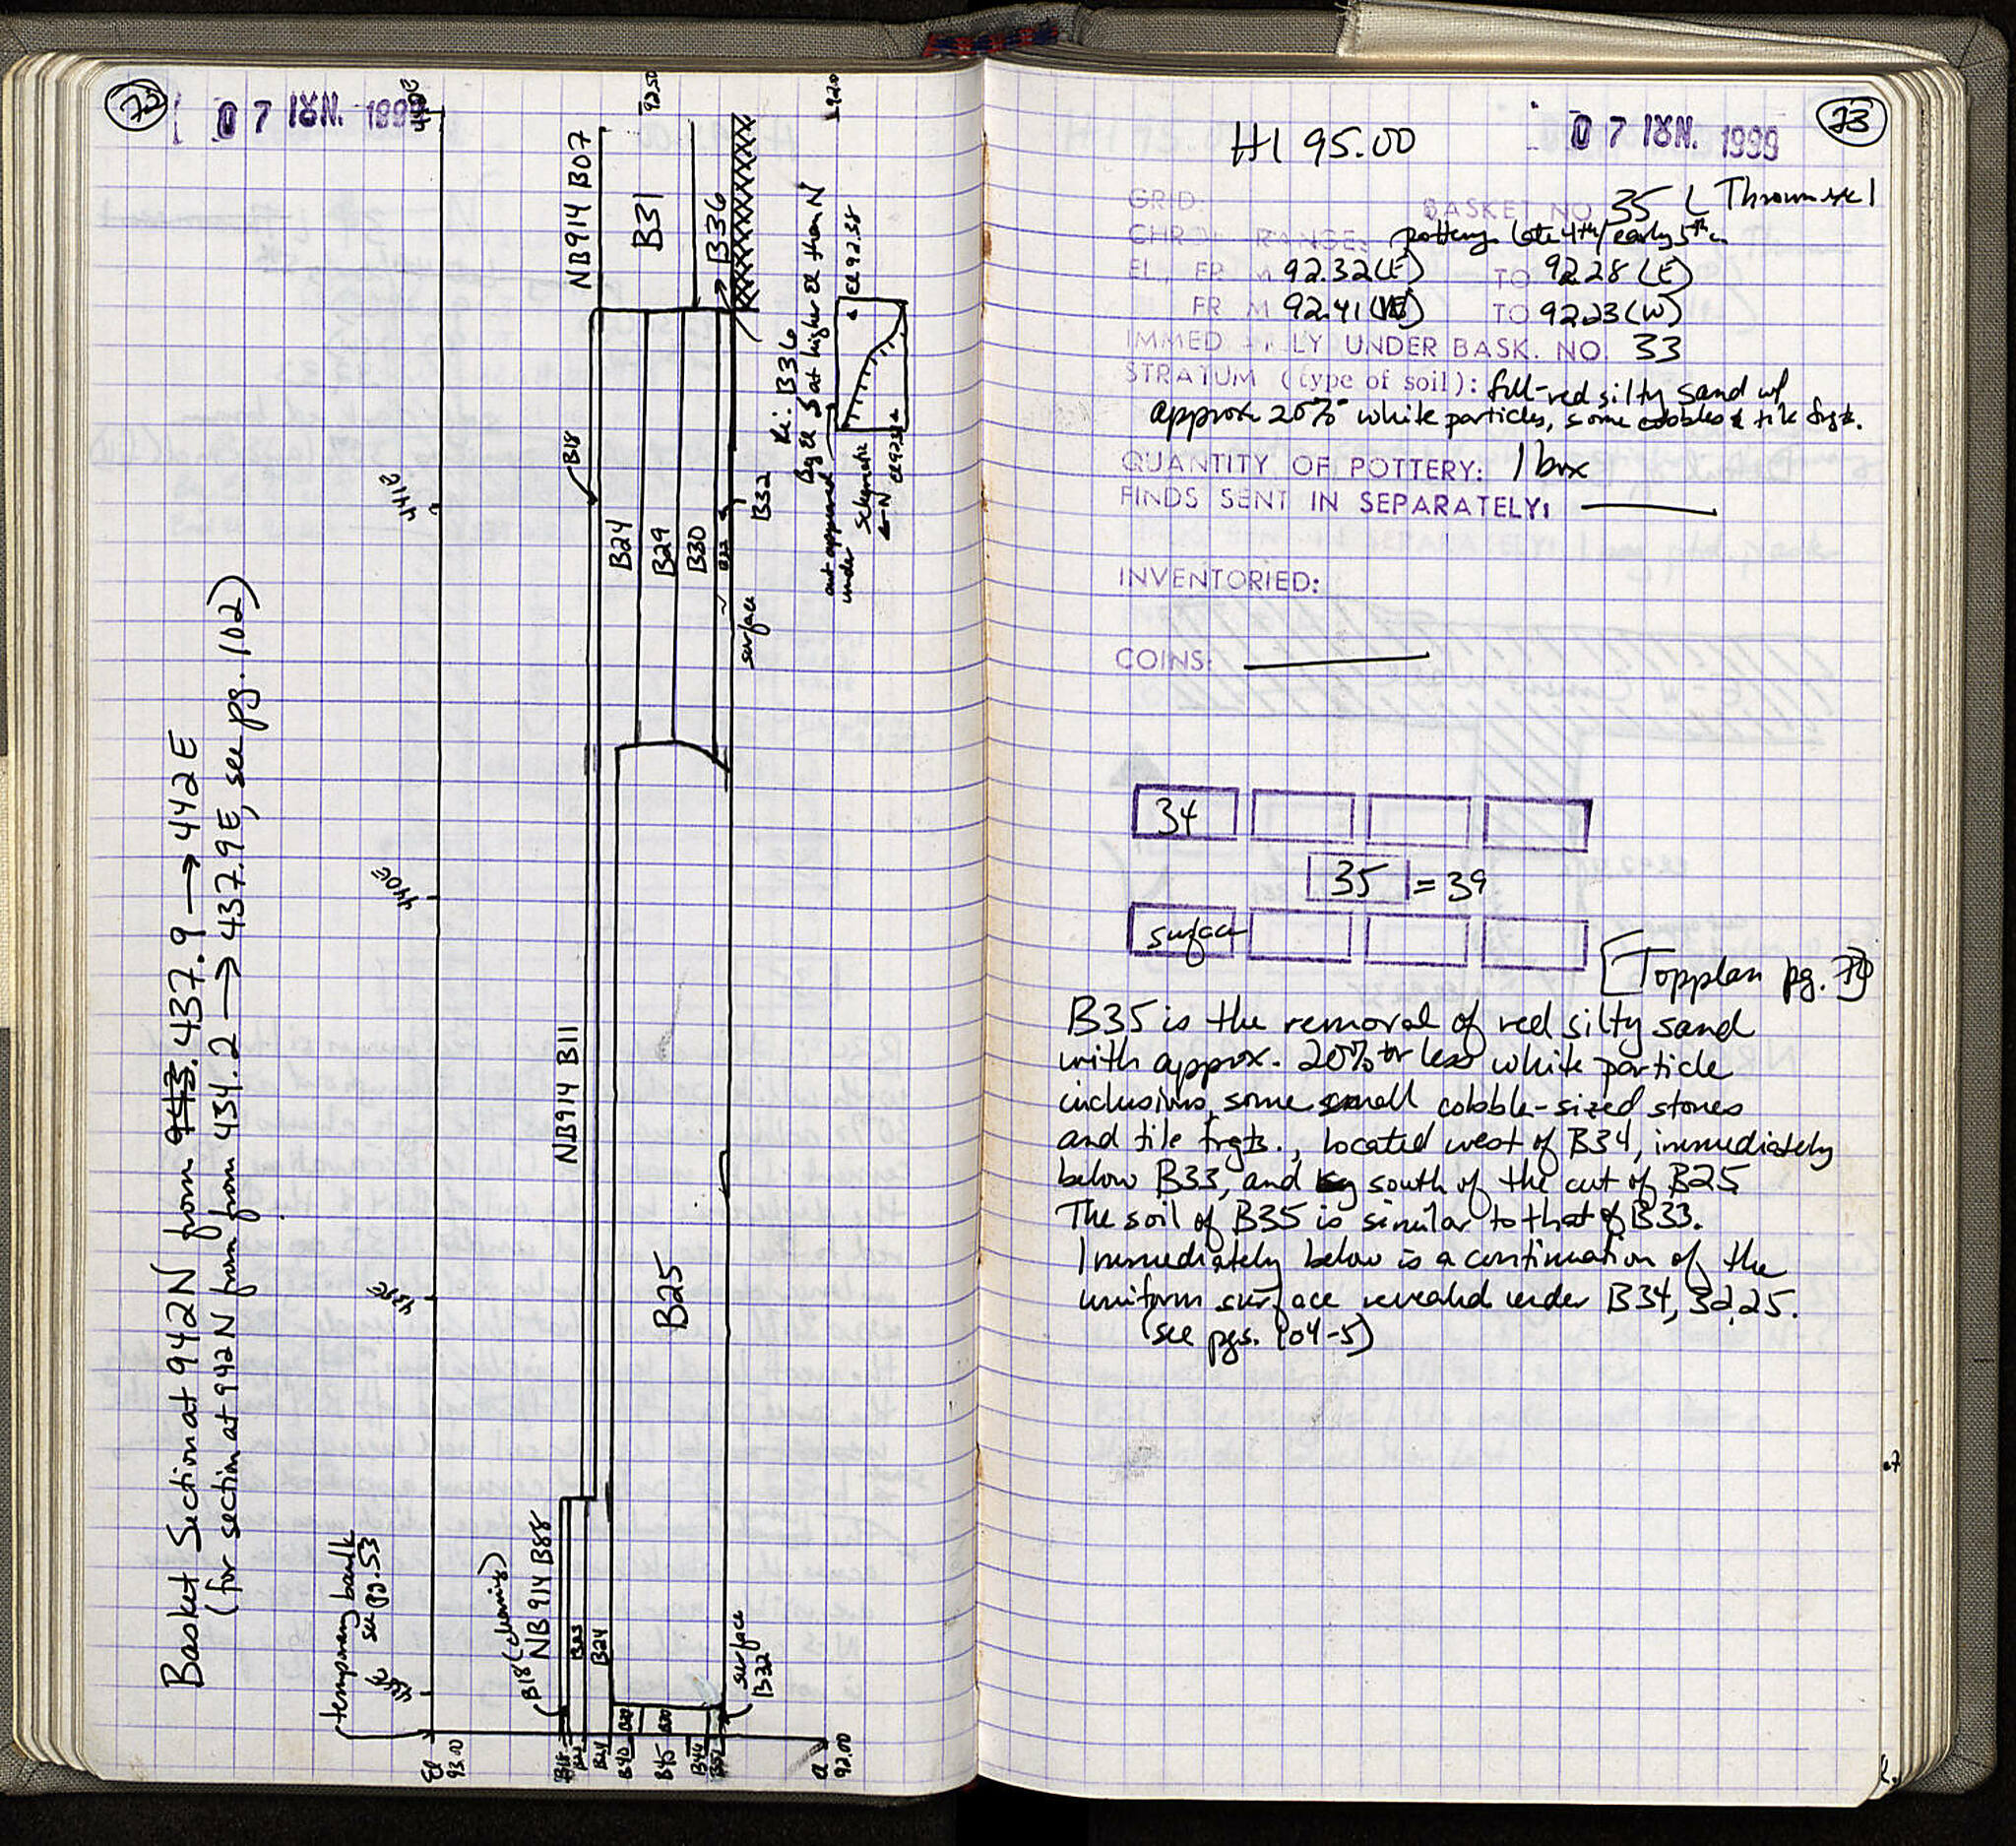 72
07 ΙΟΥΝ. 1999
Basket Section at 942N from 943. 437.9 → 442E
(for section at 942N from from 434.2 → 437.9E, see pg. 102)
temporary baulk
see pg. 53
439E
440E
441E
442E
El
93.00
B18 (cleaning)
NB914 B88
B23
B24
NB914 B11
B18
NB914 B07
B25
B24
B29
B30
B31
B336
92.50
92.00
surface
B32
surface
B32
Re: B336
By el S at higher el than N
cut appeared
under
schematic
←N
el 92.58
B18
B24
B40
B45
B46
El
92.00
73
07 ΙΟΥΝ. 1999
HI 95.00
GRID: BASKET NO. 35
CHRON. RANGE: pottery late 4th/early 5th c.
EL., FROM 92.32(E) TO 92.28 (E)
FROM 92.41(W) TO 92.23(W)
IMMEDIATELY UNDER BASK. NO. 33
STRATUM (type of soil): fill-red silty sand w/
approx 20% white particles, some cobbles & tile frgts.
QUANTITY OF POTTERY: 1 box
FINDS SENT IN SEPARATELY: ———
INVENTORIED:
COINS: ———
34
35 = 39
surface
[Topplan pg.
B35 is the removal of red silty sand
with approx. 20% or less white particle
inclusions, some small cobble-sized stones
and tile frgts., located west of B34, immediately
below B33, and south of the cut of B25
The soil of B35 is similar to that of B33.
Immediately below is a continuation of the
uniform surface revealed under B34, 32, 25.
(see pgs. 104-5)